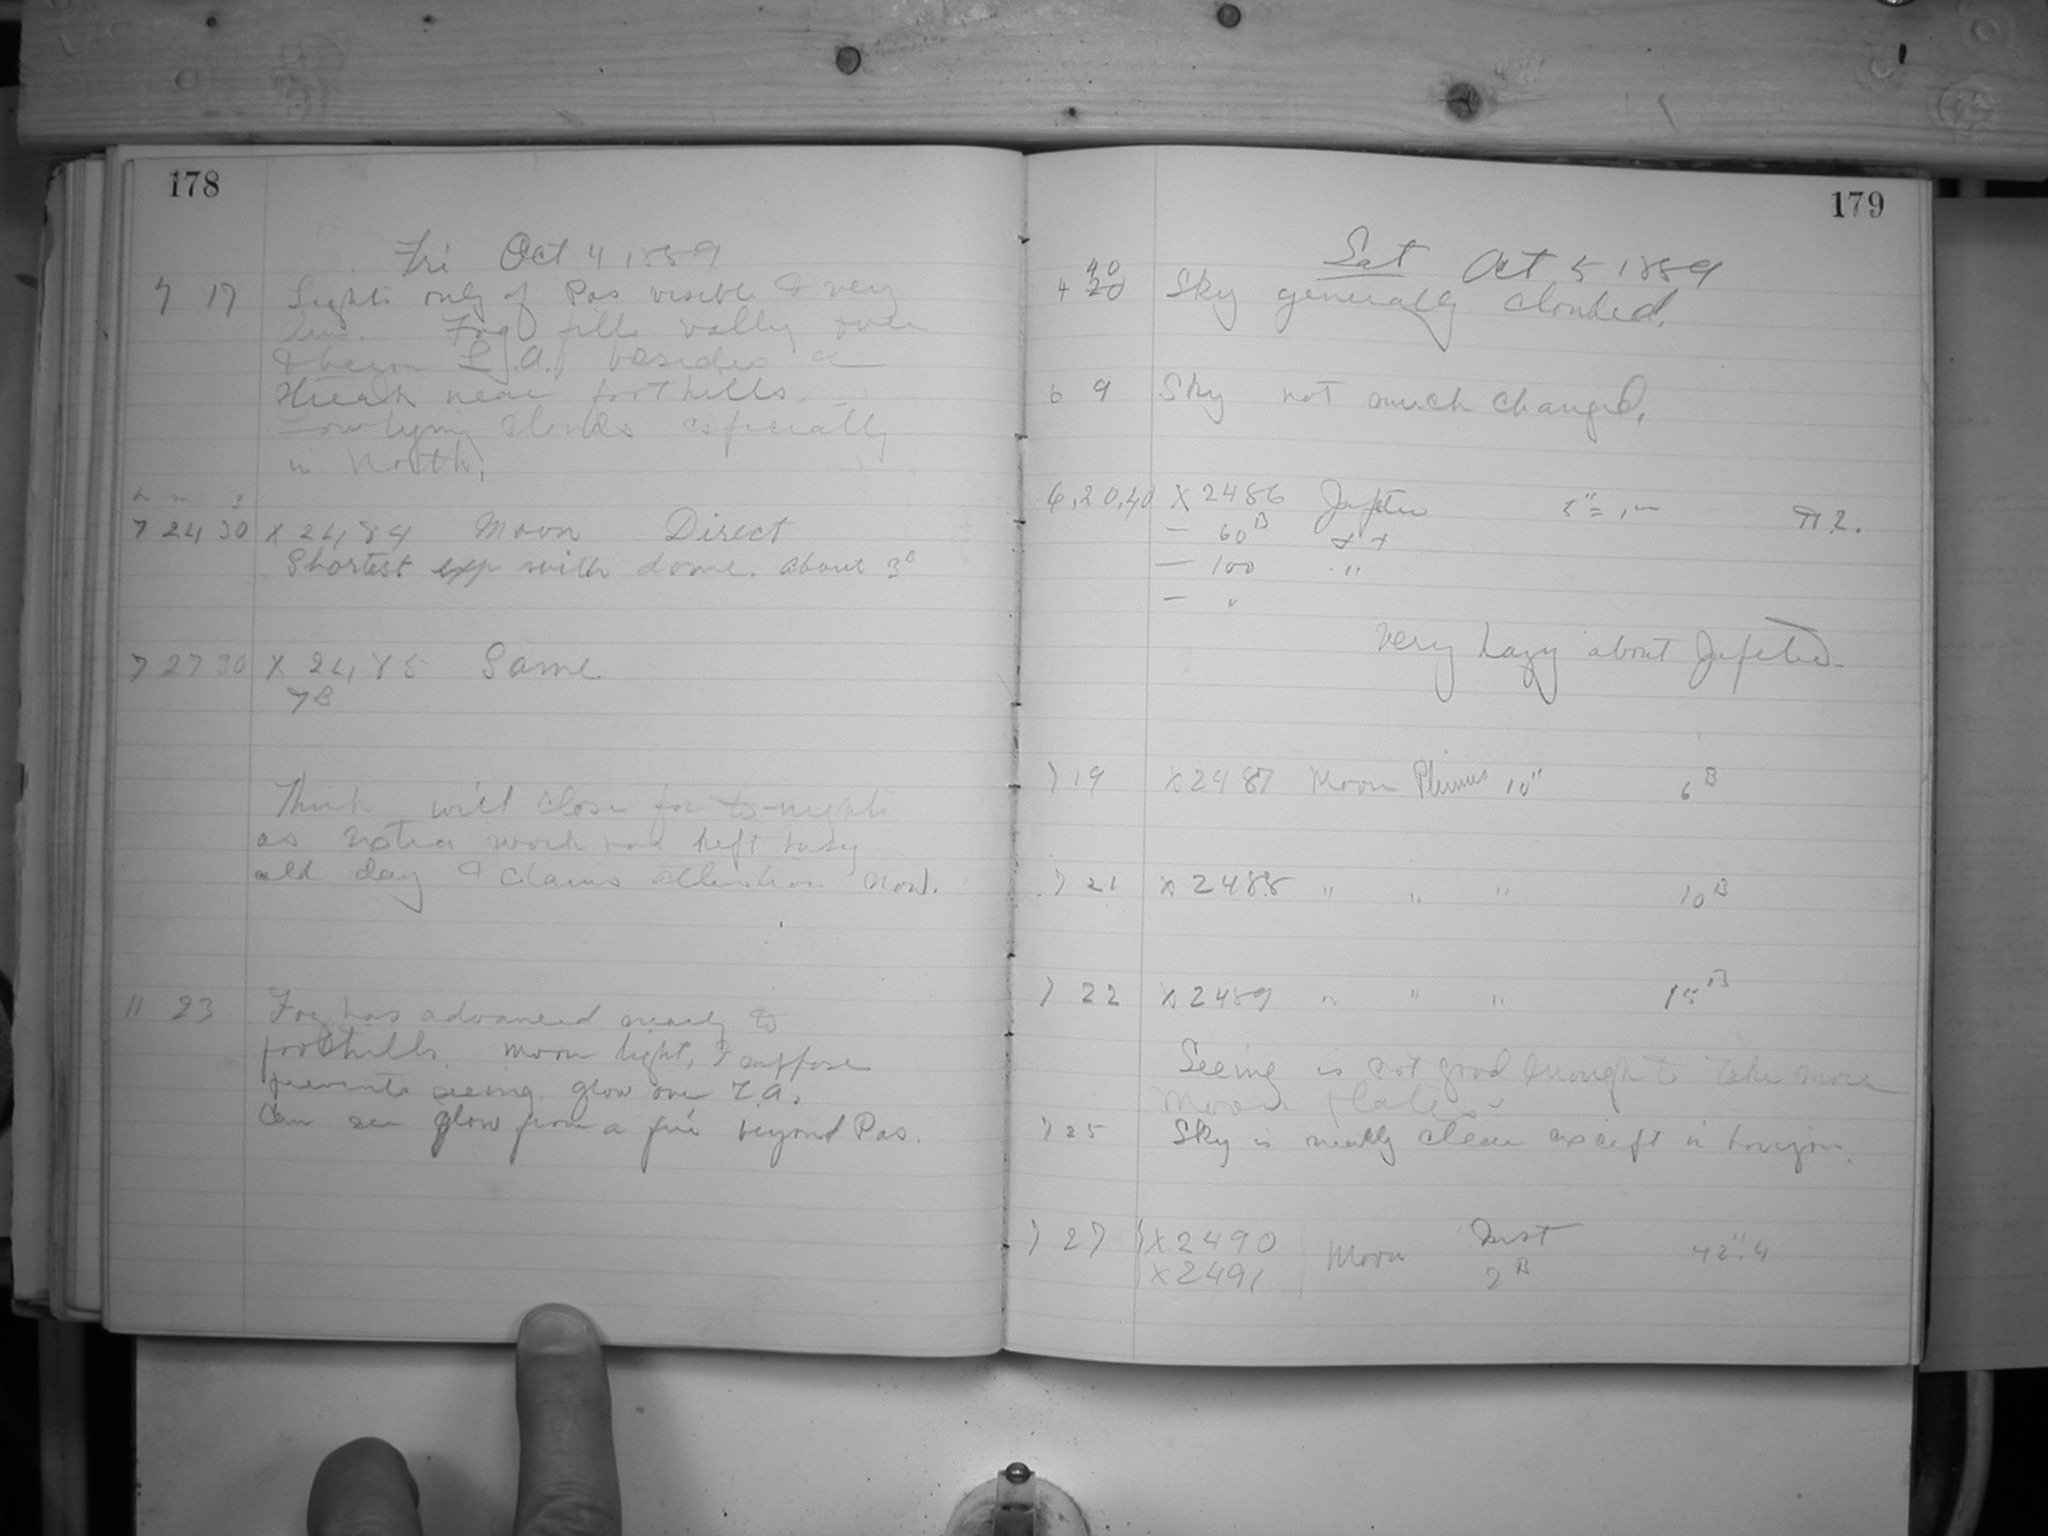 178
Fri Oct 4 1889
7 17 Lights only of Pas visible & very
dim. Fog fills vally over
& beyon L.A. besides a
streak near foothills.
Low lying clouds especially
in North.
h m s
7 24 30 X 2484 Moon Direct
Shortest exp with dome. about 3 B
7 27 30 X 2485 Same
7 B
Think will close for to-night
as work has kept busy
all day & claims attention now.
11 23 Fog has advanced nearly to
foothills. Moon light, I suppose
prevents seeing glow over L.A.
Can see glow from a fire beyond Pas.
179
Sat Oct 5 1889
40
4 20 Sky generally clouded.
6 9 Sky not much changed.
6,20,40 X 2486 Jupiter 5"
— 60 B
— 100 "
— "
Very hazy about Jupiter
7 19 X 2487 Moon Plinius 10" 6 B
7 21 X 2488 " " " 10 B
7 22 X 2489 " " " 15 B
Seeing is not good enough to take more
Moon plates
7 25 Sky is nearly clear except in horizon.
7 27 X 2490 Moon Inst 42".4
X 2491 2 B